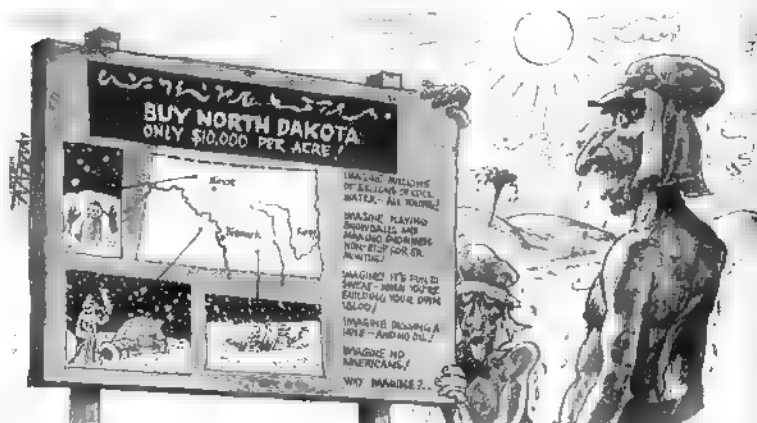 BUY NORTH DAKOTA
ONLY $10,000 PER ACRE!
Minot
Bismarck
IMAGINE MILLIONS
OF GALLONS OF COOL
WATER - ALL YOURS!
IMAGINE PLAYING
SNOWBALLS AND
MAKING SNOWMEN
NON-STOP FOR SIX
MONTHS!
IMAGINE! IT'S FUN TO
SWEAT - WHEN YOU'RE
BUILDING YOUR OWN
IGLOO!
IMAGINE DIGGING A
HOLE - AND NO OIL!
IMAGINE NO
AMERICANS!
WHY IMAGINE?..